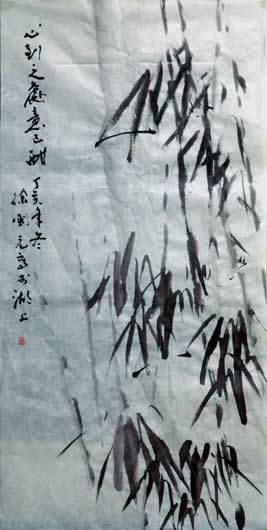 心到之處意已酣
丁亥年冬
徐國元寫於湖上